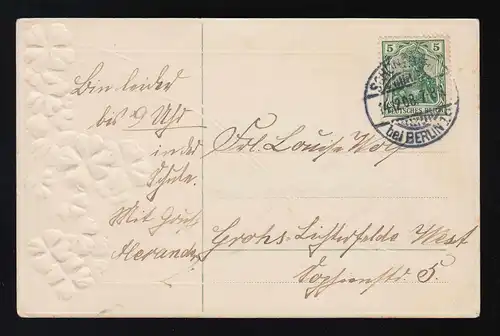 Bin leider
bis 9 Uhr
in der
Schule.
Mit Gruß
Alexander
5 5
DEUTSCHES REICH
bei BERLIN
Frl. Louise
Grohs-Lichterfelde West
Sophienstr. 5.